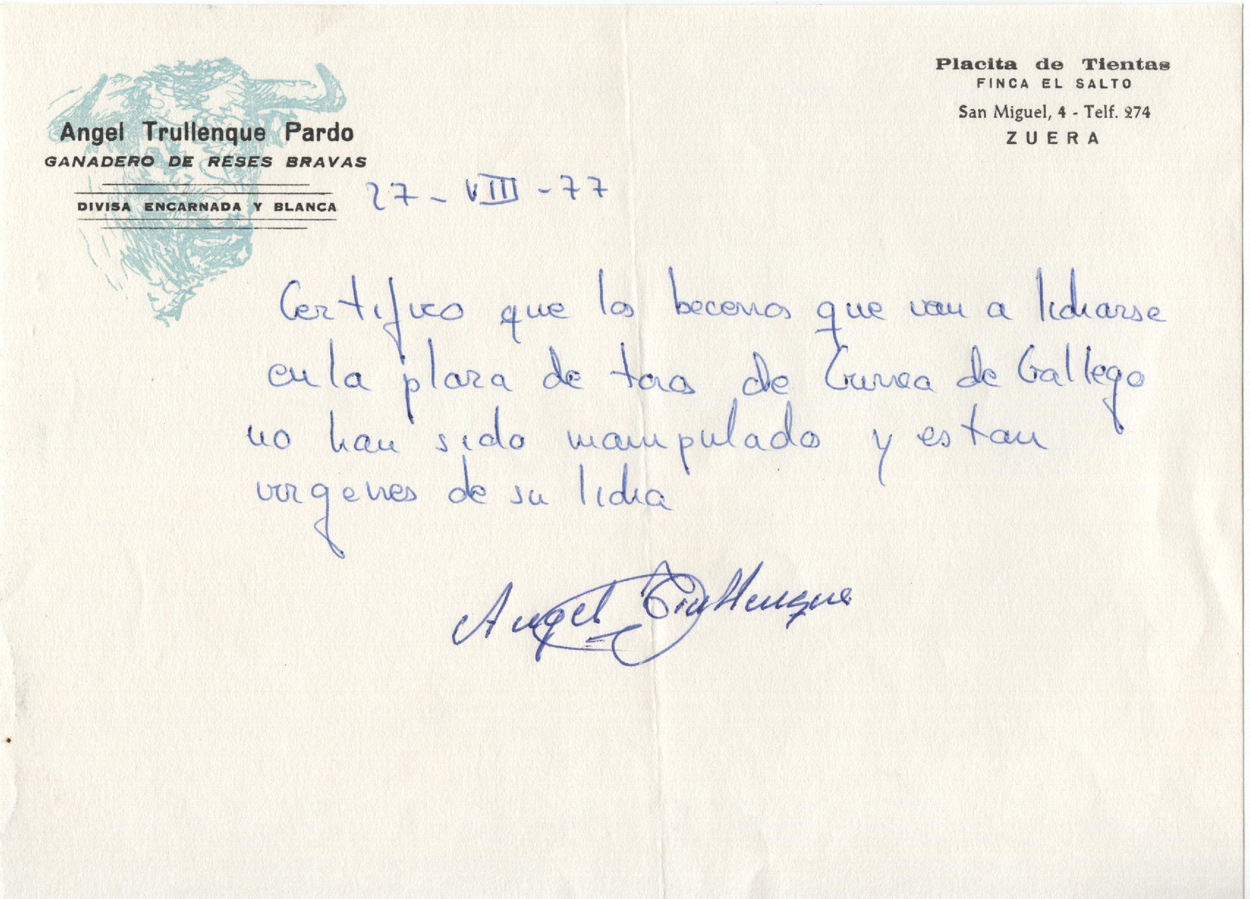 Angel Trullenque Pardo
GANADERO DE RESES BRAVAS
DIVISA ENCARNADA Y BLANCA
Placita de Tientas
FINCA EL SALTO
San Miguel, 4 - Telf. 274
ZUERA
27 - VIII - 77
Certifico que los becerros que van a lidiarse
en la plaza de toros de Gurrea de Gallego
no han sido manipulado y estan
virgenes de su lidia
Angel Trullenque